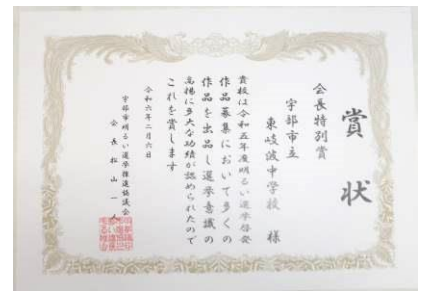 賞状
会長特別賞
宇部市立
東岐波中学校 様
貴校は令和五年度明るい選挙啓発
作品募集において多くの
作品を出品し選挙意識の
高揚に多大な功績が認められたので
これを賞します
令和六年二月六日
宇部市明るい選挙推進協議会
会長 松山一人